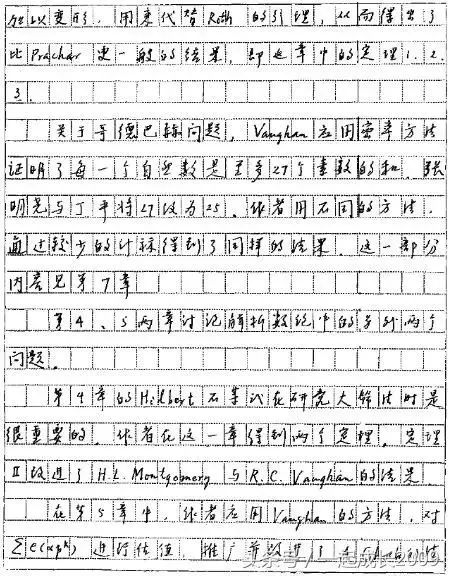 加以变形，用来代替Roth的引理，从而得出了
比Prachar更一般的结果，即这章中的定理1.2.
3.
关于哥德巴赫问题，Vaughan应用密率方法
证明了每一个自然数是至多27个素数的和，张
明尧与丁平将27改为25，作者用不同的方法，
通过较少的计算得到了同样的结果，这一部分
内容见第7章
第4、5两章讨论解析数论中的另外两个
问题。
第4章的Hilbert不等式在研究大筛法时是
很重要的，作者在这一章得到两个定理，定理
II改进了H.L.Montgomery与R.C.Vaughan的结果
在第5章中，作者应用Vaughan的方法，对
∑e(αp^k)进行估值，推广并改进了
头条号/一起成长2009